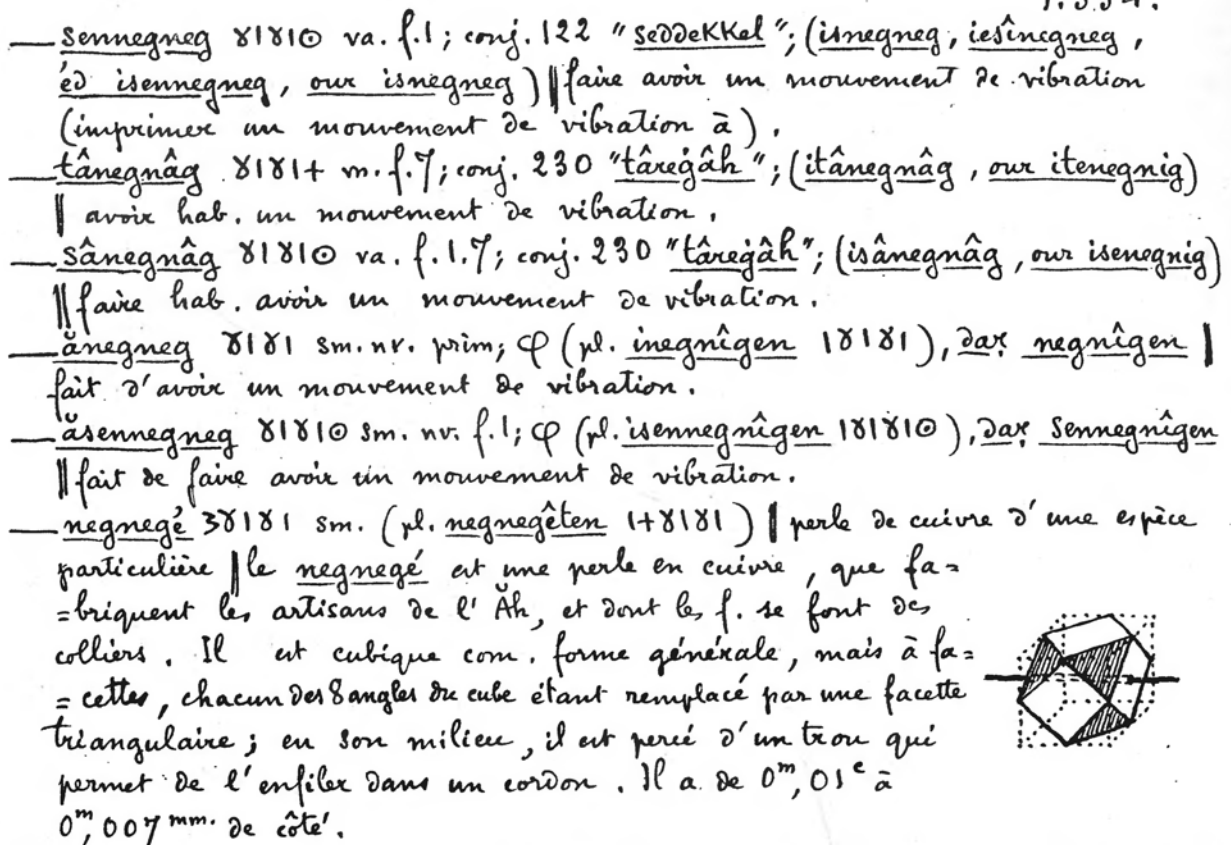 1.334.
— sennegneg ⵗⵏⵗⵏⵙ va. f.1; conj. 122 "seddekkel"; (isnegneg, iesînegneg,
éd isennegneg, our isnegneg) ‖ faire avoir un mouvement de vibration
(imprimer un mouvement de vibration à).
— tânegnâg ⵗⵏⵗⵏⵜ m. f.7; conj. 230 "târeġâh"; (itânegnâg, our itenegnig)
| avoir hab. un mouvement de vibration.
— sânegnâg ⵗⵏⵗⵏⵙ va. f.1.7; conj. 230 "târeġâh"; (isânegnâg, our isenegnig)
‖ faire hab. avoir un mouvement de vibration.
— ănegneg ⵗⵏⵗⵏ sm. nv. prim; φ (pl. inegnîgen ⵏⵗⵏⵗⵏ), daṛ negnîgen |
fait d'avoir un mouvement de vibration.
— ăsennegneg ⵗⵏⵗⵏⵙ sm. nv. f.1; φ (pl. isennegnîgen ⵏⵗⵏⵗⵏⵙ), daṛ sennegnîgen
‖ fait de faire avoir un mouvement de vibration.
— negnegé ⵉⵗⵏⵗⵏ sm. (pl. negnegêten ⵏⵜⵗⵏⵗⵏ) | perle de cuivre d'une espèce
particulière ‖ le negnegé est une perle en cuivre, que fa=
=briquent les artisans de l'Ăh, et dont les f. se font des
colliers. Il est cubique com. forme générale, mais à fa=
=cettes, chacun des 8 angles du cube étant remplacé par une facette
triangulaire; en son milieu, il est percé d'un trou qui
permet de l'enfiler dans un cordon. Il a de 0ᵐ,01ᶜ à
0ᵐ,007ᵐᵐ· de côté.